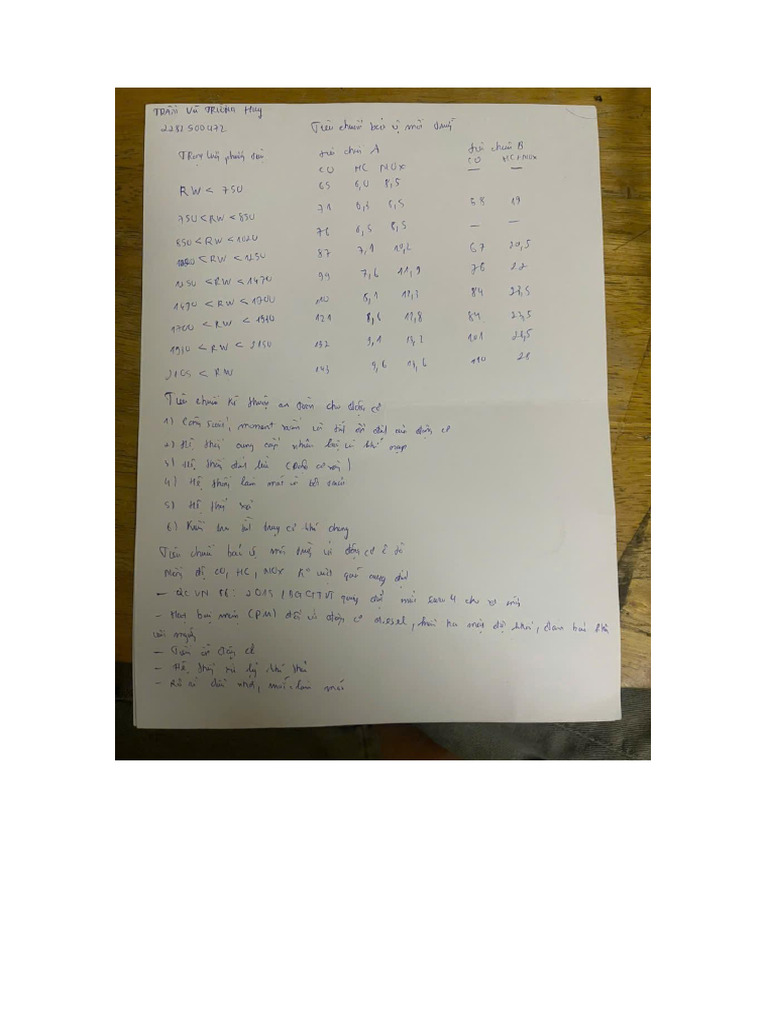 TRẦN VŨ TRƯỜNG Huy
2282500472 Tiêu chuẩn bảo vệ môi trường
Trọng lượng phương tiện tiêu chuẩn A tiêu chuẩn B
CO HC NOX CO HC+NOX
RW < 750 65 6,0 8,5 — —
750 < RW < 850 71 6,3 8,5 58 19
850 < RW < 1020 76 6,5 8,5 — —
< RW < 1250 87 7,1 10,2 67 20,5
1250 < RW < 1470 99 7,6 11,9 76 22
1470 < RW < 1700 110 8,1 12,3 84 23,5
1700 < RW < 1930 121 8,6 12,8 84 23,5
1930 < RW < 2150 132 9,1 13,2 101 26,5
< RW 143 9,6 13,6 110 28
Tiêu chuẩn kĩ thuật an toàn cho động cơ
1) Công suất, moment xoắn và tốc độ của động cơ
2) Hệ thống cung cấp nhiên liệu và khí nạp
3) Hệ thống đánh lửa
4) Hệ thống làm mát và bôi trơn
5) Hệ thống xả
6) Kiểm tra tình trạng cơ khí chung
Tiêu chuẩn bảo vệ môi trường với động cơ ô tô
Nồng độ CO, HC, NOX k° vượt quá quy định
— QCVN 86: 2015 / BGTVT quy định mức Euro 4 cho xe mới
— Hạt bụi mịn (PM) đối với động cơ diesel, kiểm tra mật độ khói, đảm bảo
— Tiếng ồn động cơ
— Hệ thống xử lý khí thải
— Rò rỉ dầu nhớt, nước làm mát